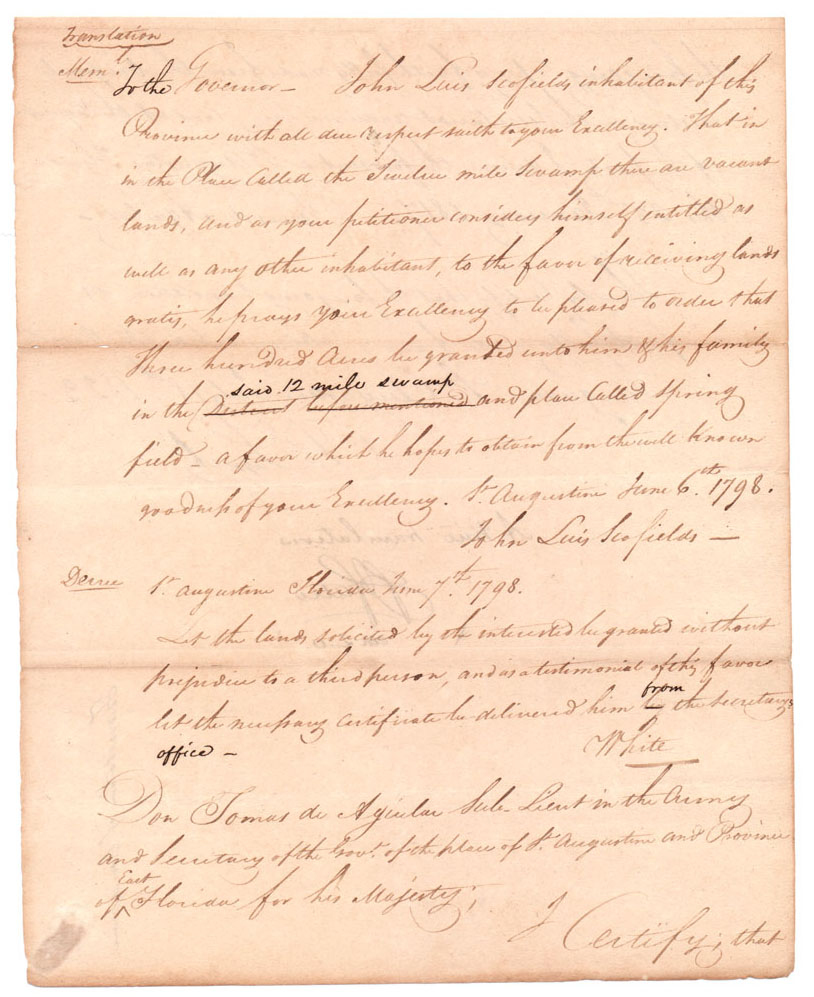 Translation
Meml.
To the Governor — John Luis Scofields inhabitant of this
Province with all due respect saith to your Excellency. That in
in the Place Called the Twelve mile Swamp there are vacant
lands, and as your petitioner considers himself entitled as
well as any other inhabitant, to the favor of receiving lands
gratis, he prays your Excellency to be pleased to order that
Three hundred Acres be granded unto him & his family
said 12 mile swamp
in the District before mentioned and place Called Spring
field — a favor which he hopes to obtain from the well Known
goodness of your Excellency. St. Augustine June 6th. 1798.
John Luis Scofields —
Decree St. Augustine Florida June 7th. 1798.
Let the lands solicited by the interested be granted without
prejudice to a third person, and as a testimonial of this favor
from
let the necessary Certificate be delivered him by the Secretarys
office —
White
Don Tomas de Aguilar Sub-Lieut in the Army
and Secretary of the Govt. of the place of St. Augustine and Province
East
of ^ Florida for his Majesty;
I Certify; that